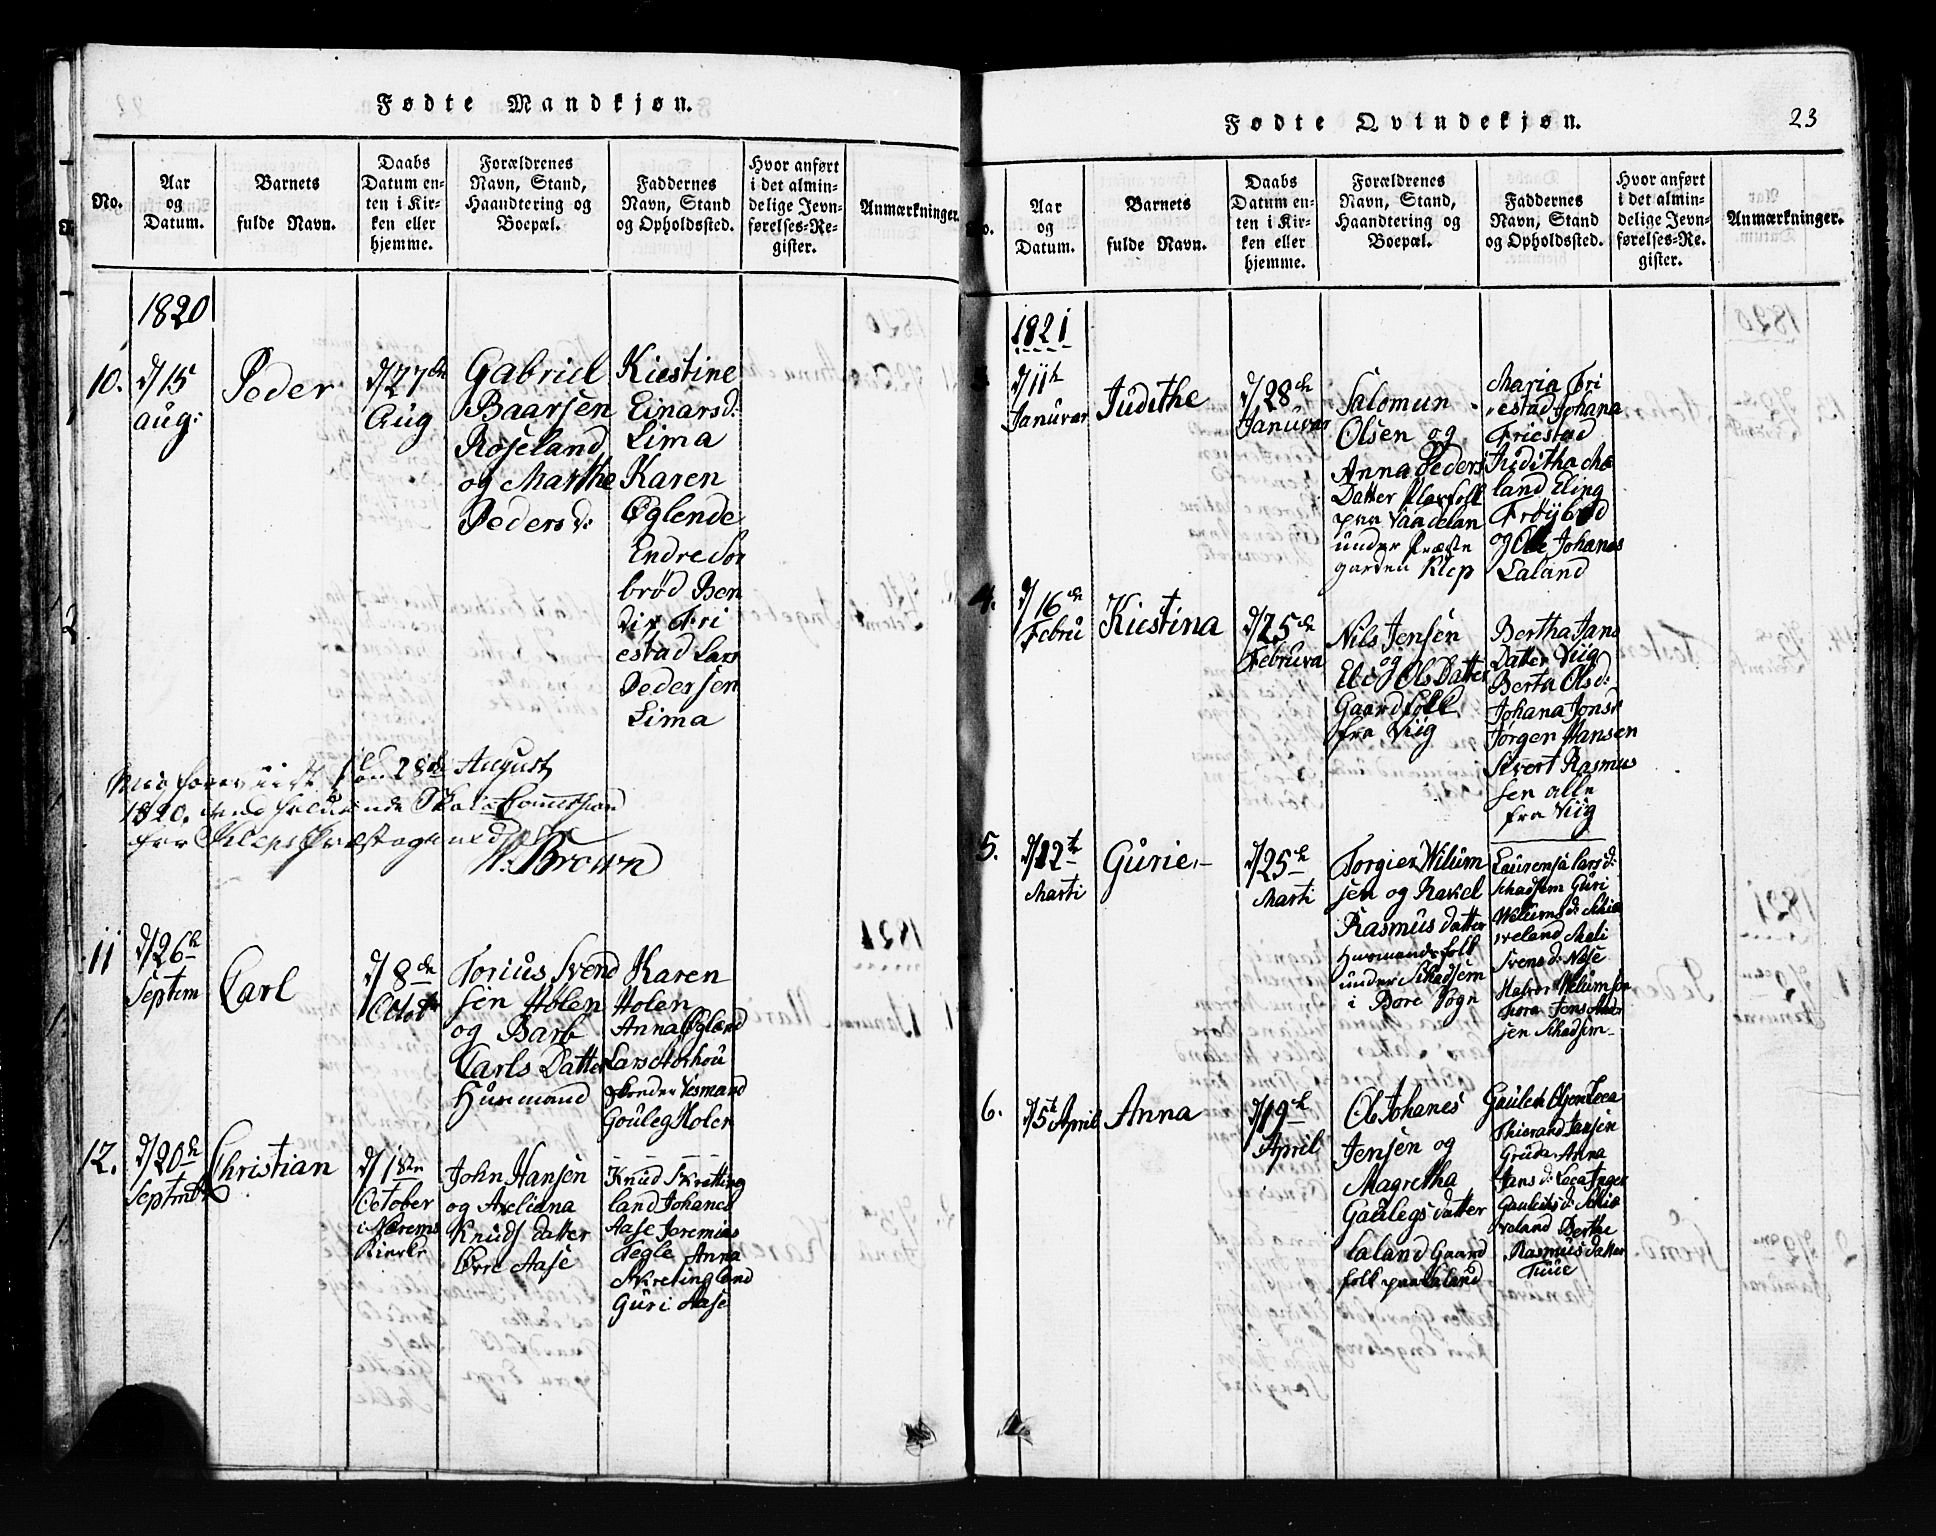 Fødte Mandkjøn.
No.
Aar
og
Datum.
Barnets
fulde Navn.
Daabs
Datum en-
ten i Kir-
ken eller
hjemme.
Forældrenes
Navn, Stand,
Haandtering og
Boepæl.
Faddernes
Navn, Stand
og Opholdssted.
Hvor anført
i det almin-
delige Jevn-
førelses-Re-
gister.
Anmærkninger.
1820
10.
d/15
aug:
Peder
d/27de
Aug
Gabriel
Baarsen
Roseland
og Marthe
Peders d:
Kiestine
Einarsd:
Lima
Karen
Øglende
Endre Sør
brød Ben
dix Fri
estad Lars
Pedersen
Lima
28de August
1820.
for Klep Præstegield
Brown
11
d/26h
Septem
Carl
d/8de
October
Torius Svend
sen Holen
og Barb
Carls Datter
Husmand
Karen
Holen
Anna Øgland
Lars
Vesmand
Gouleg Holen
12.
d/20h
Septmb
Christian
d/18n
October
i Nærems
Kierke
John Hansen
og Axeliana
Knuds datter
Øvre Aase
Knud Skretting
land Johanes
Aase Jeremias
Tegle Anna
Skretingland
Guri Aase
Fødte Qvindekjøn.
23
No.
Aar
og
Datum.
Barnets
fulde Navn.
Daabs
Datum en-
ten i Kir-
ken eller
hjemme.
Forældrenes
Navn, Stand,
Haandtering og
Boepæl.
Faddernes
Navn, Stand
og Opholdssted.
Hvor anført
i det almin-
delige Jevn-
førelses-Re-
gister.
Anmærkninger.
1821
3.
d/11h
Januvar
Judithe
d/28de
Januvar
Salomun
Olsen og
Anna Peders
Datter
paa Vaadelan
under Præste
garden Klep
Maria Fri
estad Johana
Friestad
Juditha Mæ
land Eling
Frøybrød
og Ole Johanes
Laland
4.
d/16de
Febru
Kiestina
d/25de
Februva
Nils Jensen
og
Olsdatter
Gaardfolk
fra Viig
Bertha Jans
Datter Viig
Berta Olsd:
Johana Jonsd
Jørgen Hansen
Sivert Rasmus
sen alle
fra Viig
5.
d/12te
Marti
Gurie
d/25h
Marti
Torgier Wilum
sen og Rakel
Rasmus datter
Husmandsfolk
under Skadsem
i Bore Sogn
Laurensa Larsd:
Skadsem Guri
Welumsd: Skiæ
veland Mali
Svensd: Nese
Halvor Welumsen
Tora Jens
sen Skadsem
6.
d/5h April
Anna
d/19h
April
Ole Johanes
Jensen og
Magretha
Gaulegs datter
laland Gaard
folk paa Laland
Gaulech Olsen Leea
Thieran Jansen
Gruda Anna
Jans d: Leea Inger
Gaulechs d: Skiæ
veland Berthe
Rasmus datter
Tuue